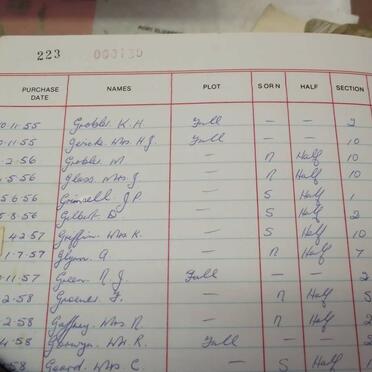 223 000130
PURCHASE DATE NAMES PLOT S OR N HALF SECTION
0.11.55 Grobbler K.H. Full — — 2
0.11.55 Gericke Mrs H.J. Full — — 10
.2.56 Grobler M. — N Half 10
.5.56 Glass Mrs J — N Half 10
5.6.56 Grinsell J.P. — S Half 1
5.8.56 Gilbert E — S Half 2
4.2.57 Griffin Mrs K. — S Half 10
1.7.57 Glynn A. — N Half 7
.11.57 Green N.J. Full — — 2
.2.58 Groenes F. — N Half 5
.2.58 Gaffney Mrs N — N Half 2
.4.58 Mrs R. Full — —
.58 Goard Mrs C. — S Half 1